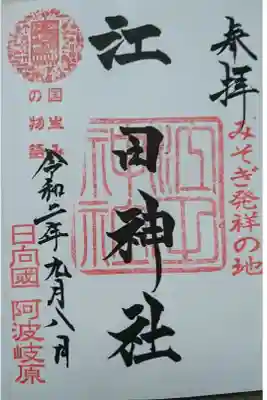 奉拝
みそぎ発祥の地
江田神社
令和二年九月八日
国生み
の物語
日向國 阿波岐原